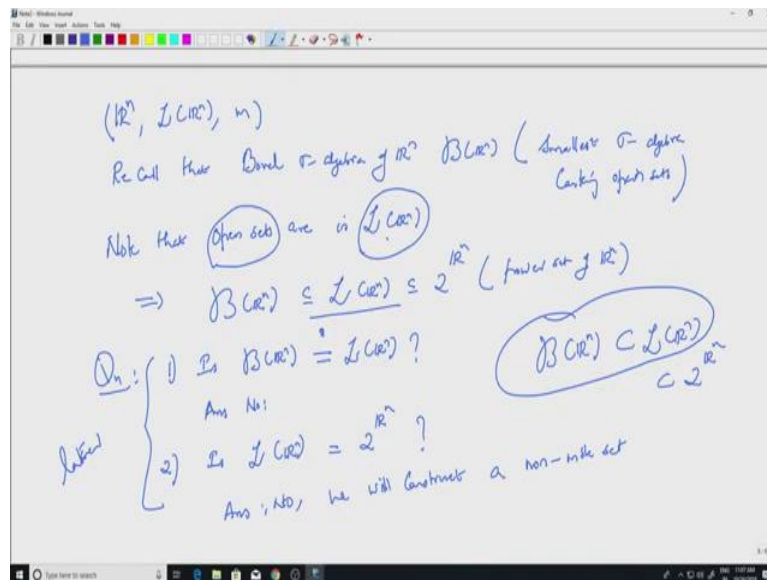 Note1 - Windows Journal
File Edit View Insert Actions Tools Help
B I
(ℝⁿ, L(ℝⁿ), m)
Recall that Borel σ-algebra of ℝⁿ B(ℝⁿ) ( Smallest σ-algebra
Containing open sets )
Note that open sets are in L(ℝⁿ)
⇒ B(ℝⁿ) ⊆ L(ℝⁿ) ⊆ 2^ℝⁿ ( power set of ℝⁿ )
Qn: 1) Is B(ℝⁿ) = L(ℝⁿ) ?
B(ℝⁿ) ⊂ L(ℝⁿ)
⊂ 2^ℝⁿ
Ans No:
2) Is L(ℝⁿ) = 2^ℝⁿ ?
Ans: NO, we will Construct a non-mble set
Type here to search
ENG 11:07 AM